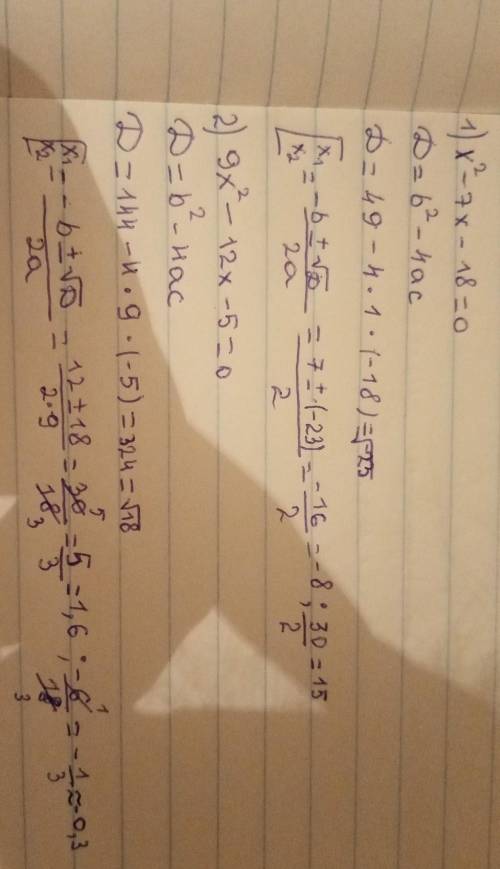 1) x² - 7x - 18 = 0
D = b² - 4ac
D = 49 - 4 · 1 · (-18) = √-25
[x1 x2 = -b ± √D / 2a = 7 ± (-23) / 2 = -16 / 2 = -8 ; 30 / 2 = 15
2) 9x² - 12x - 5 = 0
D = b² - 4ac
D = 144 - 4 · 9 · (-5) = 324 = √18
[x1 x2 = -b ± √D / 2a = 12 ± 18 / 2·9 = 30 5 / 18 3 = 5 / 3 = 1,6 ; -6 1 / 18 3 = -1 / 3 ≈ -0,3